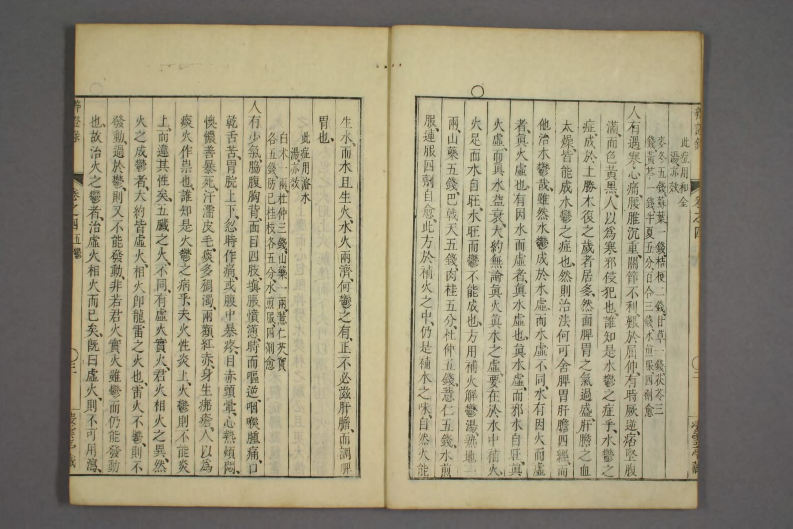 此症用和金
湯亦效
麥冬五錢蘇葉一錢桔梗二錢甘草一錢茯苓三
錢黃芩一錢半夏五分百合三錢水煎服四劑愈
人有遇寒心痛𦝫腹沉重關節不利艱於屈伸有時厥逆痞堅腹
滿面色黃黑人以為寒邪侵犯也誰知是水鬱之症乎水鬱之
症成於土勝木復之歲者居多然而脾胃之氣過盛肝膽之血
太燥皆能成水鬱之症也然則治法何可舍脾胃肝膽四經而
他治水鬱哉雖然水鬱成於水虛而水虛不同水有因火而虛
者眞火虛也有因水而虛者眞水虛也眞水虛而邪水自旺眞
火虛而眞水益衰大約無論眞火眞水之虛要在於水中補火
火足而水自旺水旺而鬱不能成也方用補火解鬱湯熟地一
兩山藥五錢巴戟天五錢肉桂五分杜仲五錢薏仁五錢水煎
服連服四劑自愈此方於補火之中仍是補水之味自然火能
生水而水且生火水火兩濟何鬱之有正不必滋肝膽而調脾
胃也
此症用浴水
湯亦效
白术一兩杜仲三錢山藥一兩薏仁芡實
各五錢防己桂枝各五分水煎服四劑愈
人有少氣脇腹胸背面目四肢塡脹憤懣時而嘔逆咽喉腫痛口
乾舌苦胃脘上下忽時作痛或腹中暴疼目赤頭暈心熱煩悶
懊憹善暴死汗濡皮毛痰多稠濁兩顴紅赤身生痱瘡人以為
痰火作祟也誰知是火鬱之病乎夫火性炎上火鬱則不能炎
上而違其性矣五臟之火不同有虛火實火君火相火之異然
火之成鬱者大約皆虛火相火即龍雷之火也雷火不鬱則不
發動過於鬱則又不能發動非若君火實火雖鬱而仍能發動
也故治火之鬱者治虛火相火而已矣旣曰虛火則不可用瀉
辨證錄
卷之四五鬱